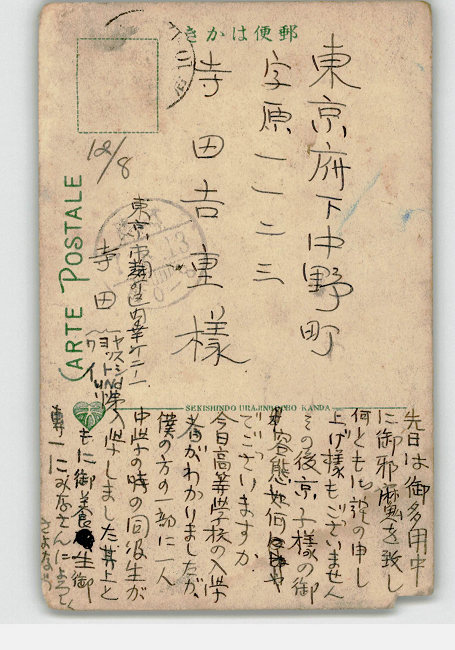 郵便はかき
東京府下中野町
字原一一二三
寺田吉重様
12/8
東京市麹町区内幸丁二ノ一
寺田
CARTE POSTALE
SEKISHINDO URAJINBOCHO KANDA
先日は御多用中
に御邪魔を致し
何ともお詫の申し
上げ様もございません
その後京子様の御
容態は如何
でございますか
今日高等学校の入学
者がわかりましたが、
僕の方の一部に一人
中学の時の同級生が
入学しました 井上と
もに御養生御
専一に みなさんによろしく
さよなら